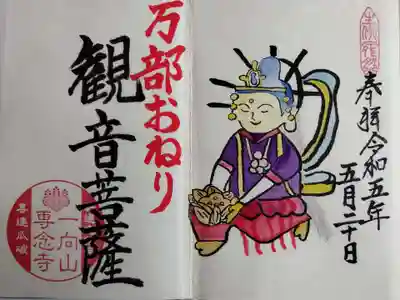 奉拝
令和五年
五月二十日
万部おねり
観音菩薩
一向山
専念寺
喜連瓜破